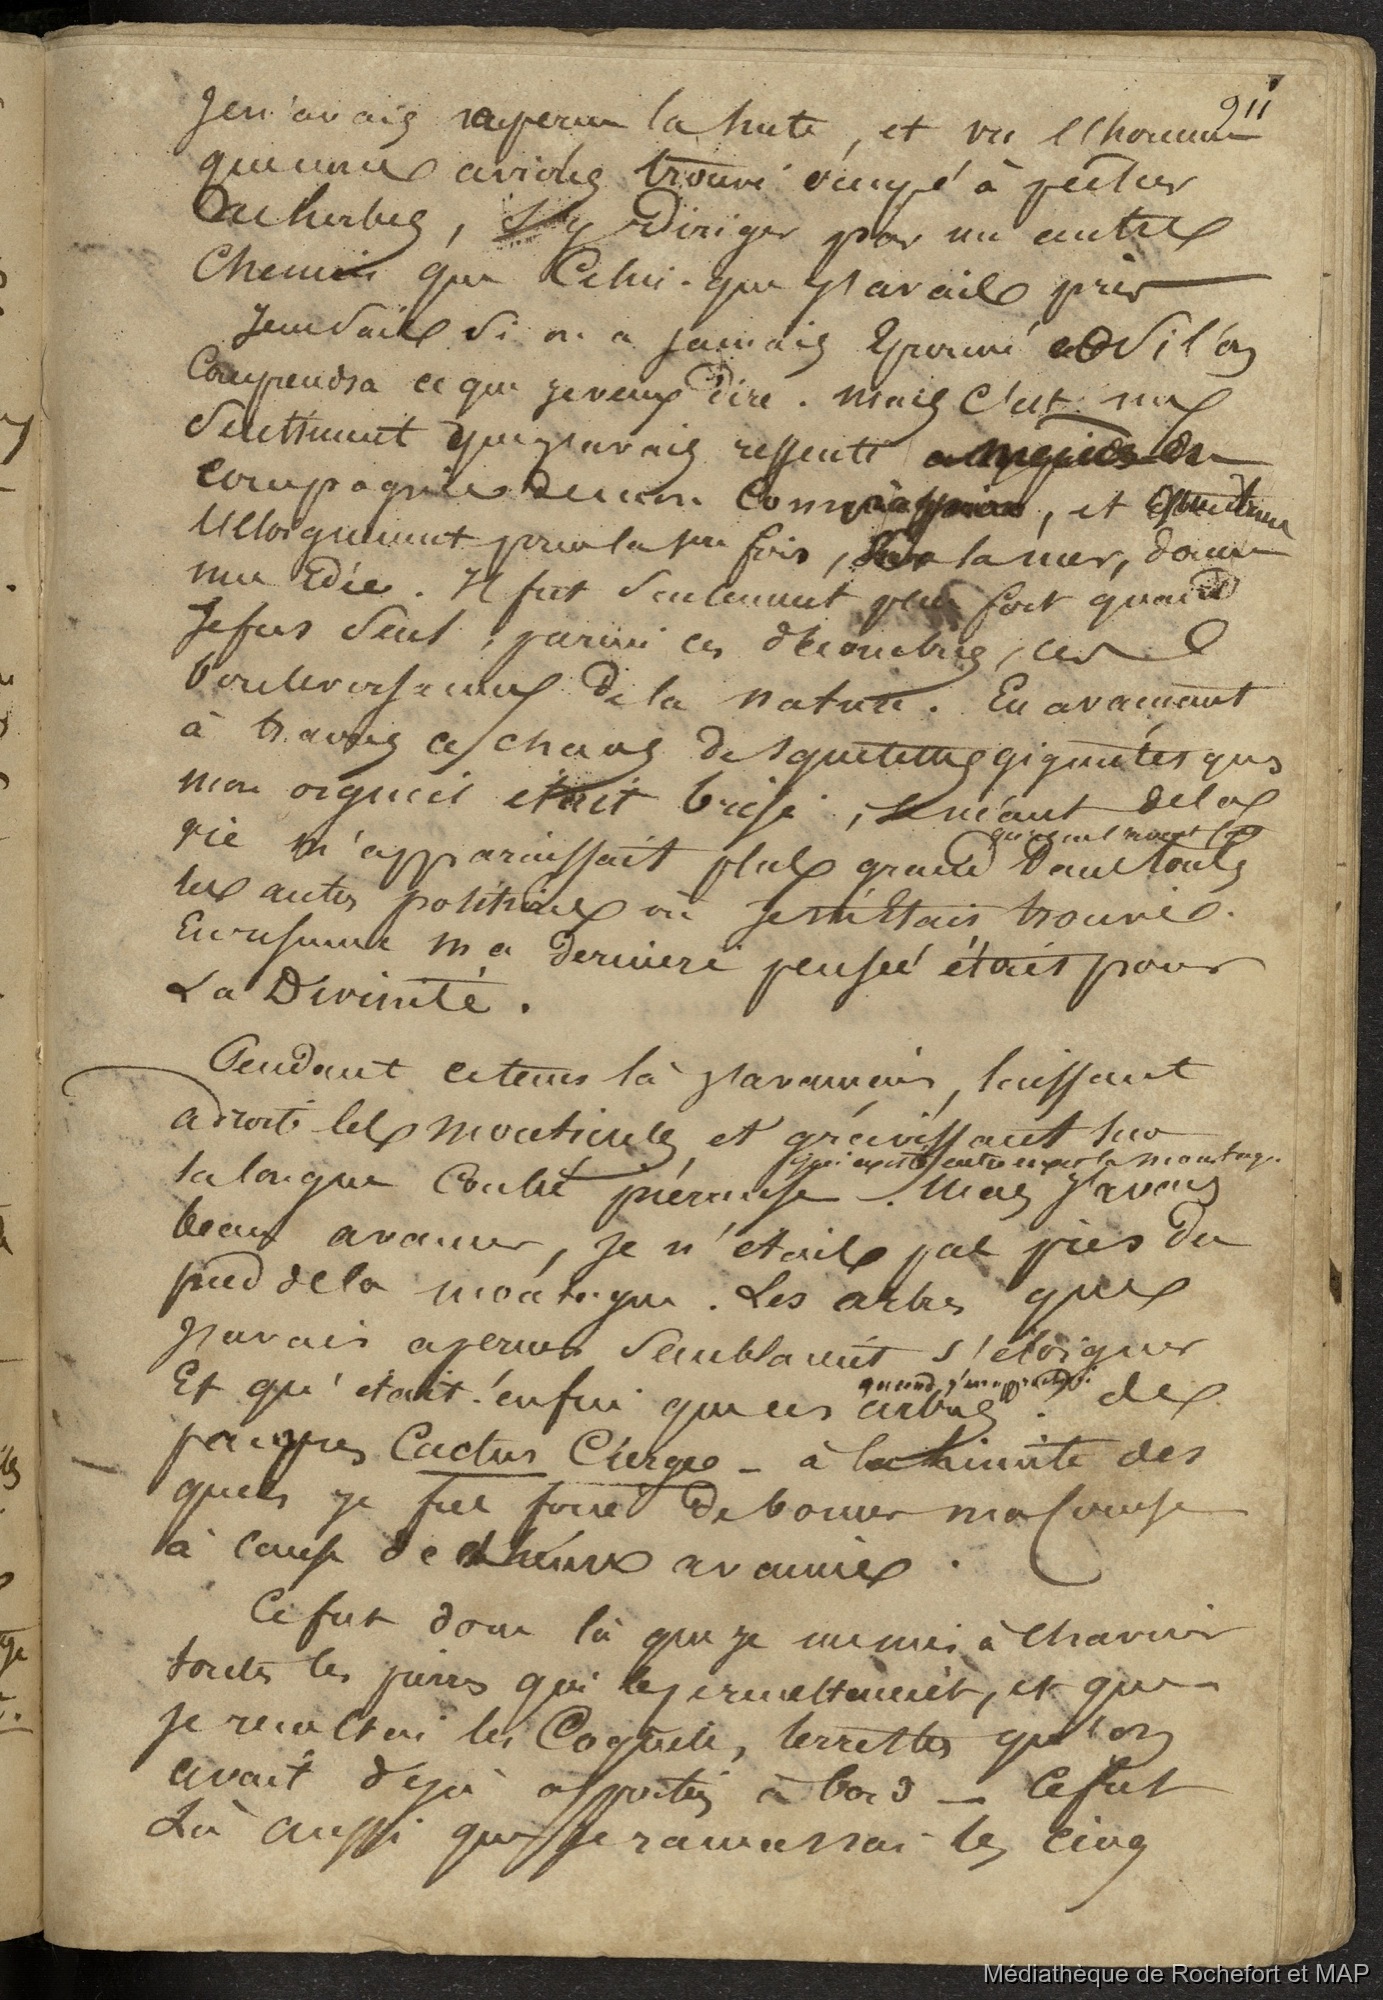 911
J'en avais aperçu la hute, et vu l'homme
que nous avions trouvé occupé à pécher
Des herbes, s'y diriger par un autre
Chemin que Celui-que j'avais pris
Je ne sais si on a jamais Eprouvé et si l'on
Comprendra ce que je veux dire. Mais c'est un
Sentiment que j'avais ressenti
compagnie de mon, et
l'éloignement pour la pre fois, la mer, donne
une Idée. Il fut Seulement plus fort quand
Je fus Seul, parmi ces décombres, ces
bouleversemens De la nature. En avançant
à travers ces champs de squelettes gigantesques
mon orgueil était brisé, le néant de la
vie m'apparaissait plus grand Dans toutes
les autres positions où je m'étais trouvé.
En résumé ma derniere pensée était pour
La Divinité.
Pendant ce tems là j'avançais, laissant
a droite les monticules, et gravissant sur
la montagne
la longue Coulée pierreuse. Mais j'avais
beau avancer, je n'étais pas près du
pied de la montagne. Les arbres que
J'avais aperçus Semblaient s'éloigner
quand j'en approchai
Et qu'était-enfin que ces arbres? des
Cactus Cierge - à la limite des
quels je fus forcé De borner ma Course
à cause de l'heure avancée.
Ce fut donc là que je me mis à chavirer
toutes les pierres qui le permettaient, et que
je récoltai les Coquilles terrestres qu'on
avait déjà apportés à bord - Ce fut
Là aussi que je ramassai les cinq
Médiathèque de Rochefort et MAP